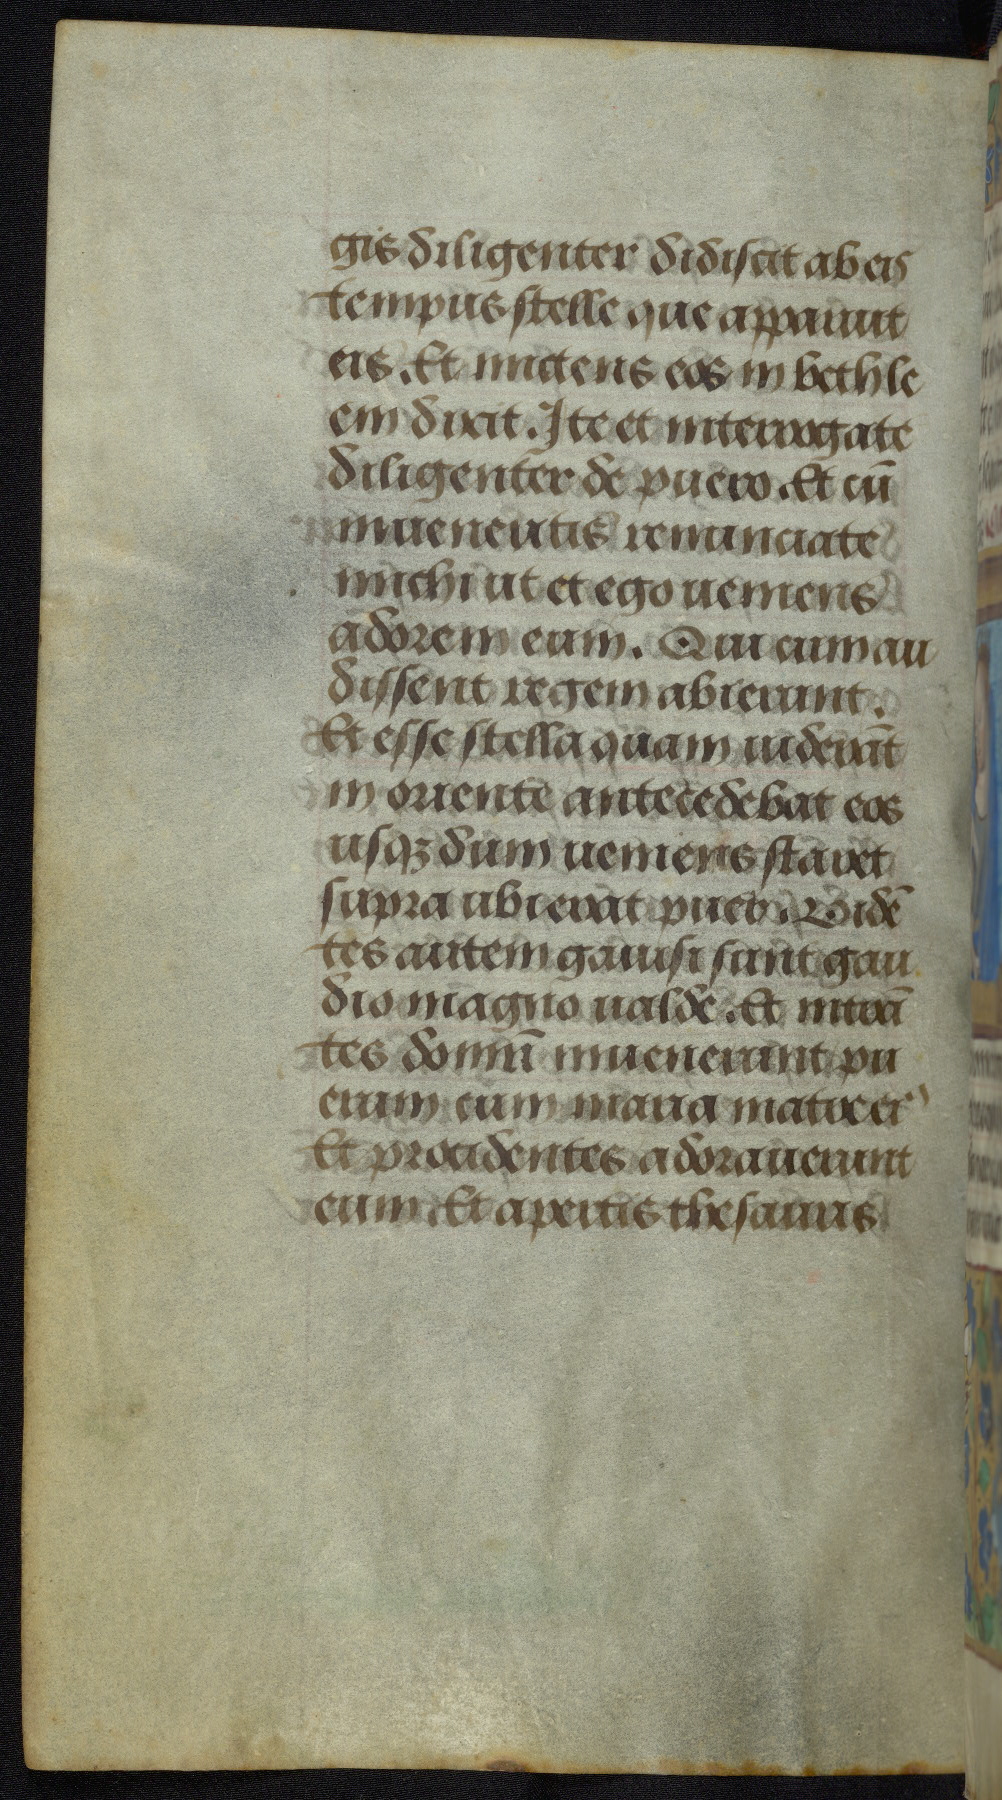 gis diligenter didiscit ab eis
tempus stelle que apparuit
eis. Et mittens eos in bethle
em dixit. Ite et interrogate
diligenter de puero. Et cū
inueneritis renunciate
michi ut et ego ueniens
adorem eum. Qui cum au
dissent regem abierunt.
Et esse stella quam uiderāt
in oriente antecedebat eos
usqꝫ dum ueniens staret
supra ubi erat puer. Vidē
tes autem gauisi sunt gau
dio magno ualde. Et intrā
tes domū inuenerunt pu
erum cum maria matre ei'
Et procidentes adorauerunt
eum. Et apertis thesauris